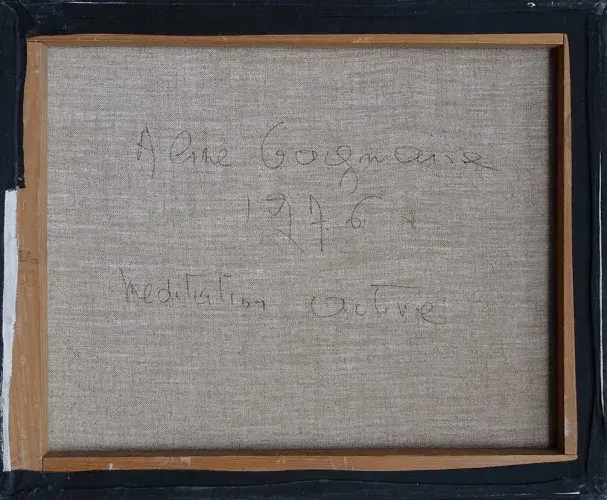 Aline Gagnaire
1976
Meditation active